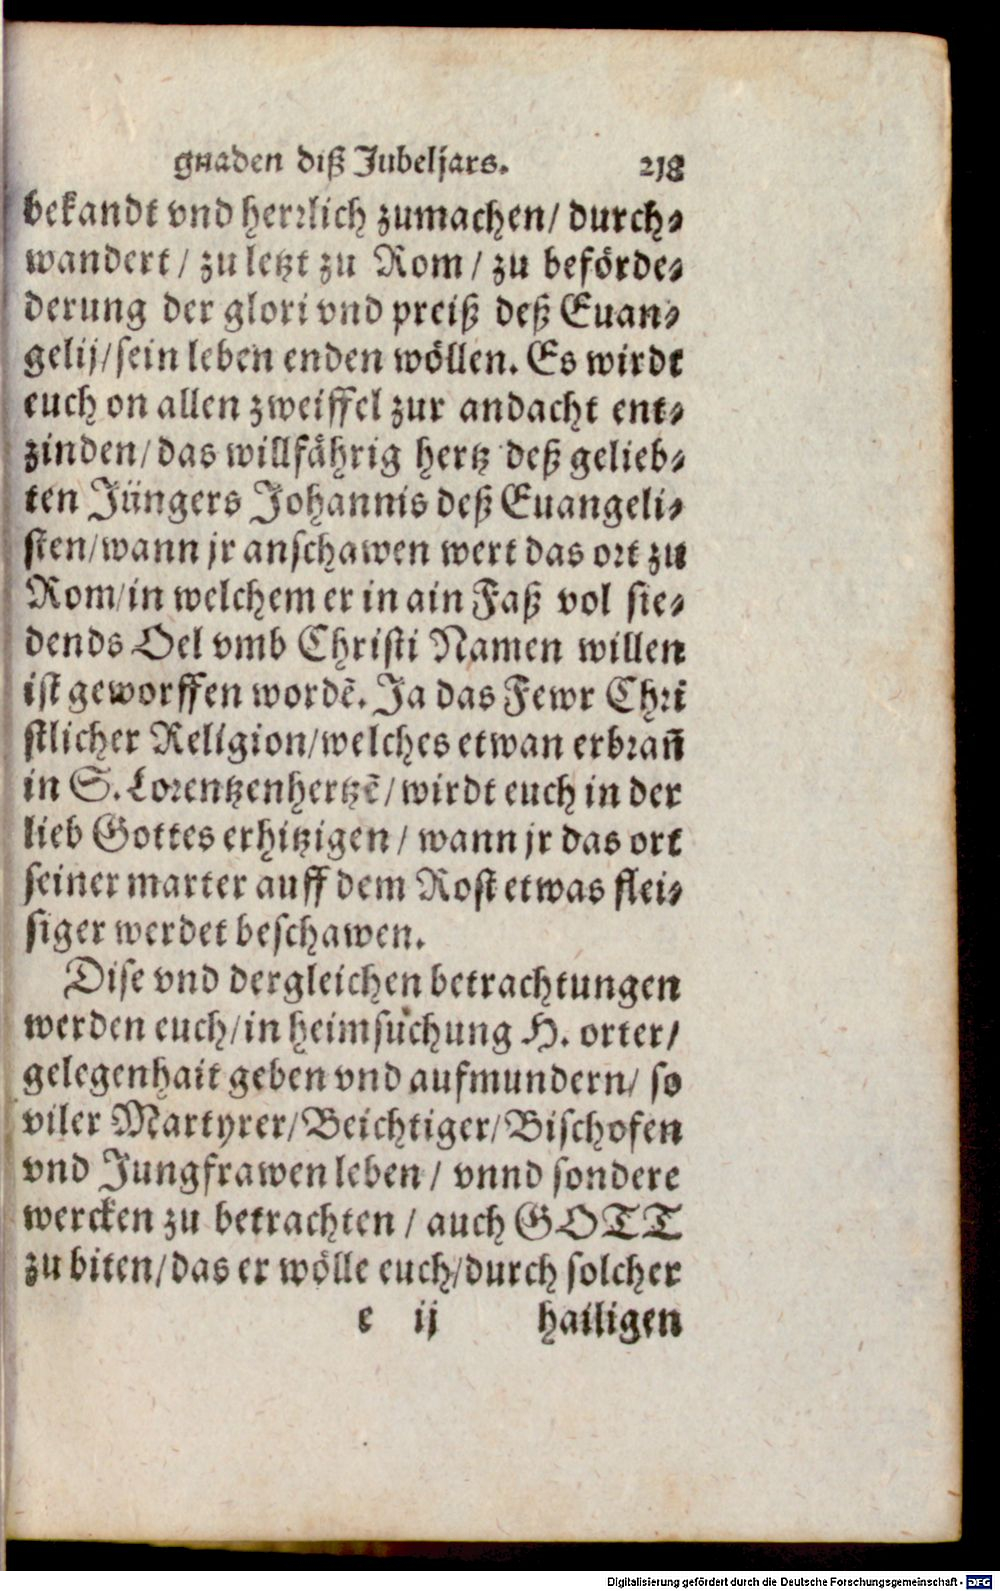 gnaden diß Jubeljars. 218
bekandt vnd herrlich zumachen/ durch-
wandert/ zu letzt zu Rom/ zu beförde-
derung der glori vnd preiß deß Euan-
gelij/sein leben enden wöllen. Es wirdt
euch on allen zweiffel zur andacht ent-
zinden/das willfährig hertz deß gelieb-
ten Jüngers Johannis deß Euangeli-
sten/wann jr anschawen wert das ort zu
Rom/in welchem er in ain Faß vol sie-
dends Oel vmb Christi Namen willen
ist geworffen wordē. Ja das Fewr Chri
stlicher Religion/welches etwan erbrañ
in S. Lorentzenhertzē/wirdt euch in der
lieb Gottes erhitzigen/ wann jr das ort
seiner marter auff dem Rost etwas flei-
siger werdet beschawen.
Dise vnd dergleichen betrachtungen
werden euch/in heimsuchung H. orter/
gelegenhait geben vnd aufmundern/ so
viler Martyrer/Beichtiger/Bischofen
vnd Jungfrawen leben/ vnnd sondere
wercken zu betrachten/ auch GOTT
zu biten/das er wölle euch/durch solcher
e ij hailigen
Digitalisierung gefördert durch die Deutsche Forschungsgemeinschaft - DFG